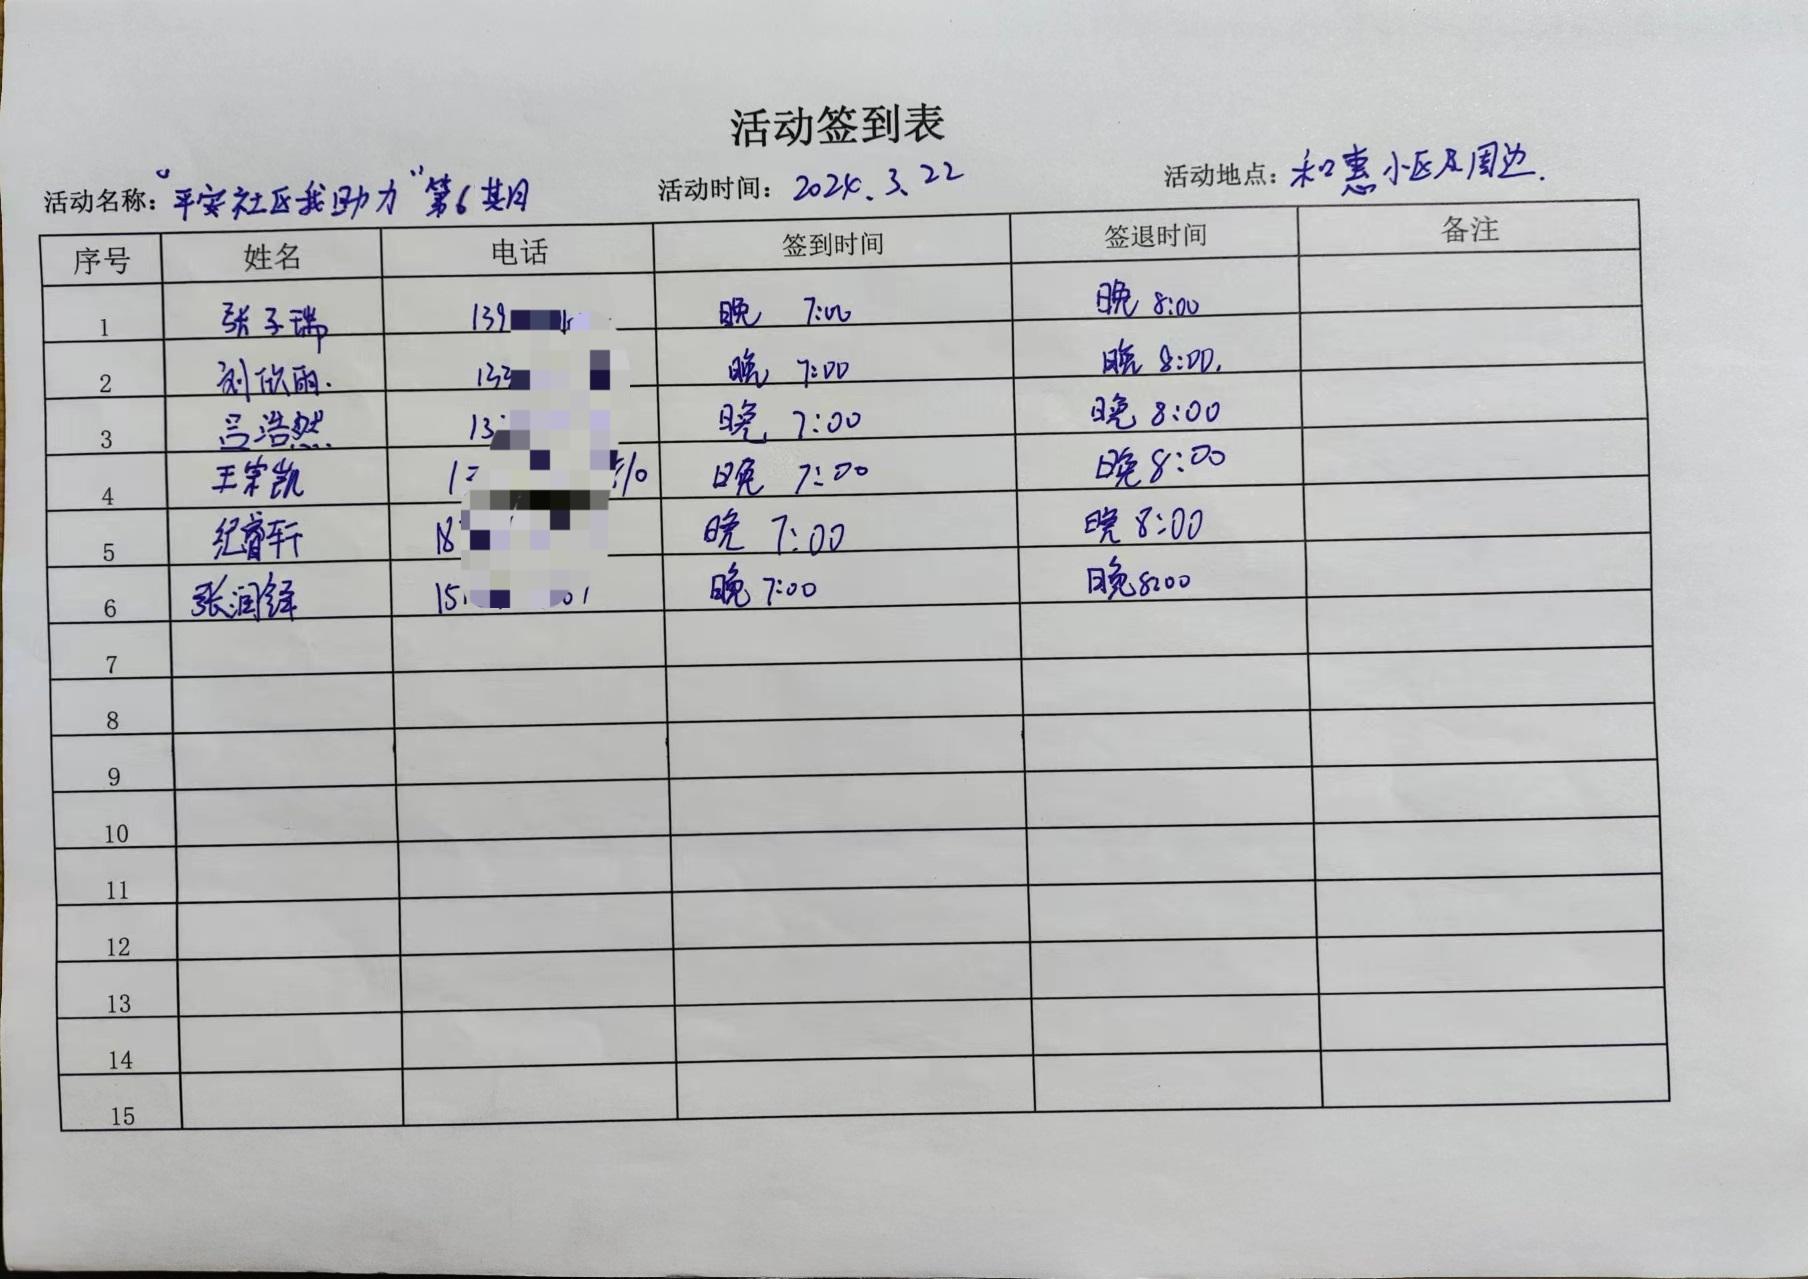 活动签到表
活动名称：“平安社区我助力”第6期 活动时间：2024.3.22 活动地点：和惠小区及周边.
序号 姓名 电话 签到时间 签退时间 备注
1 张子瑞 139 晚 7:00 晚 8:00
2 刘欣雨. 晚 7:00 晚 8:00.
3 吕浩然 13 晚 7:00 晚 8:00
4 王宗凯 晚 7:00 晚 8:00
5 纪睿轩 18 晚 7:00 晚 8:00
6 张润铎 15 晚 7:00 晚 8:00
7
8
9
10
11
12
13
14
15